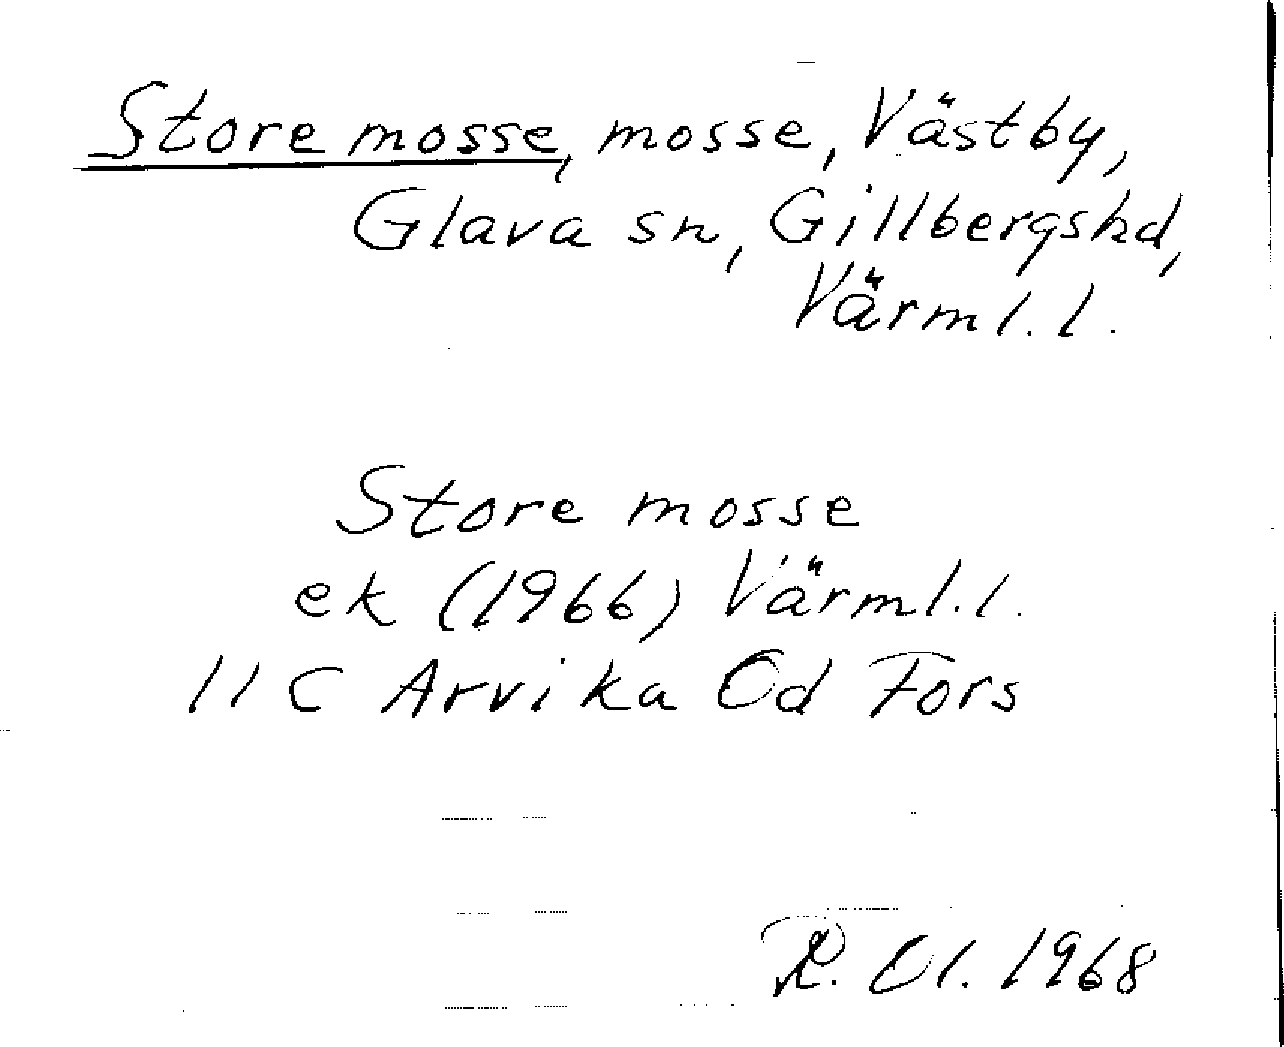 Store mosse, mosse, Västby,
Glava sn, Gillbergshd,
Värml. l.
Store mosse
ek (1966) Värml. l.
11 C Arvika Od Fors
R. Ol. 1968